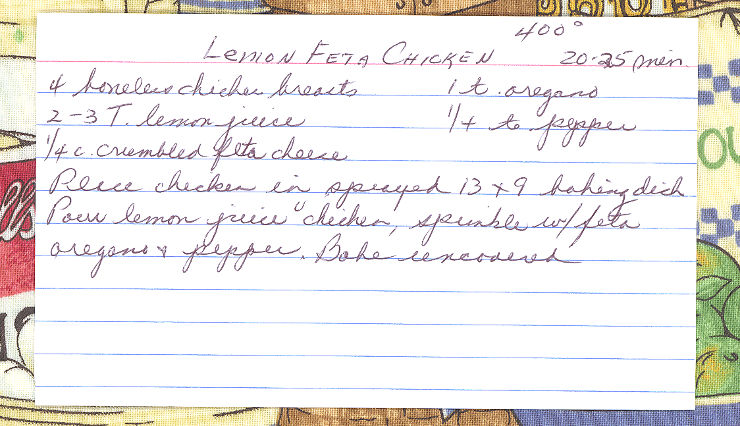 400°
LEMON FETA CHICKEN 20-25 min
4 boneless chicken breasts 1 t. oregano
2-3 T. lemon juice 1/4 t. pepper
1/4 c. crumbled feta cheese
Place chicken in sprayed 13 x 9 baking dish
Pour lemon juice " chicken, sprinkle w/ feta
oregano & pepper. Bake uncovered